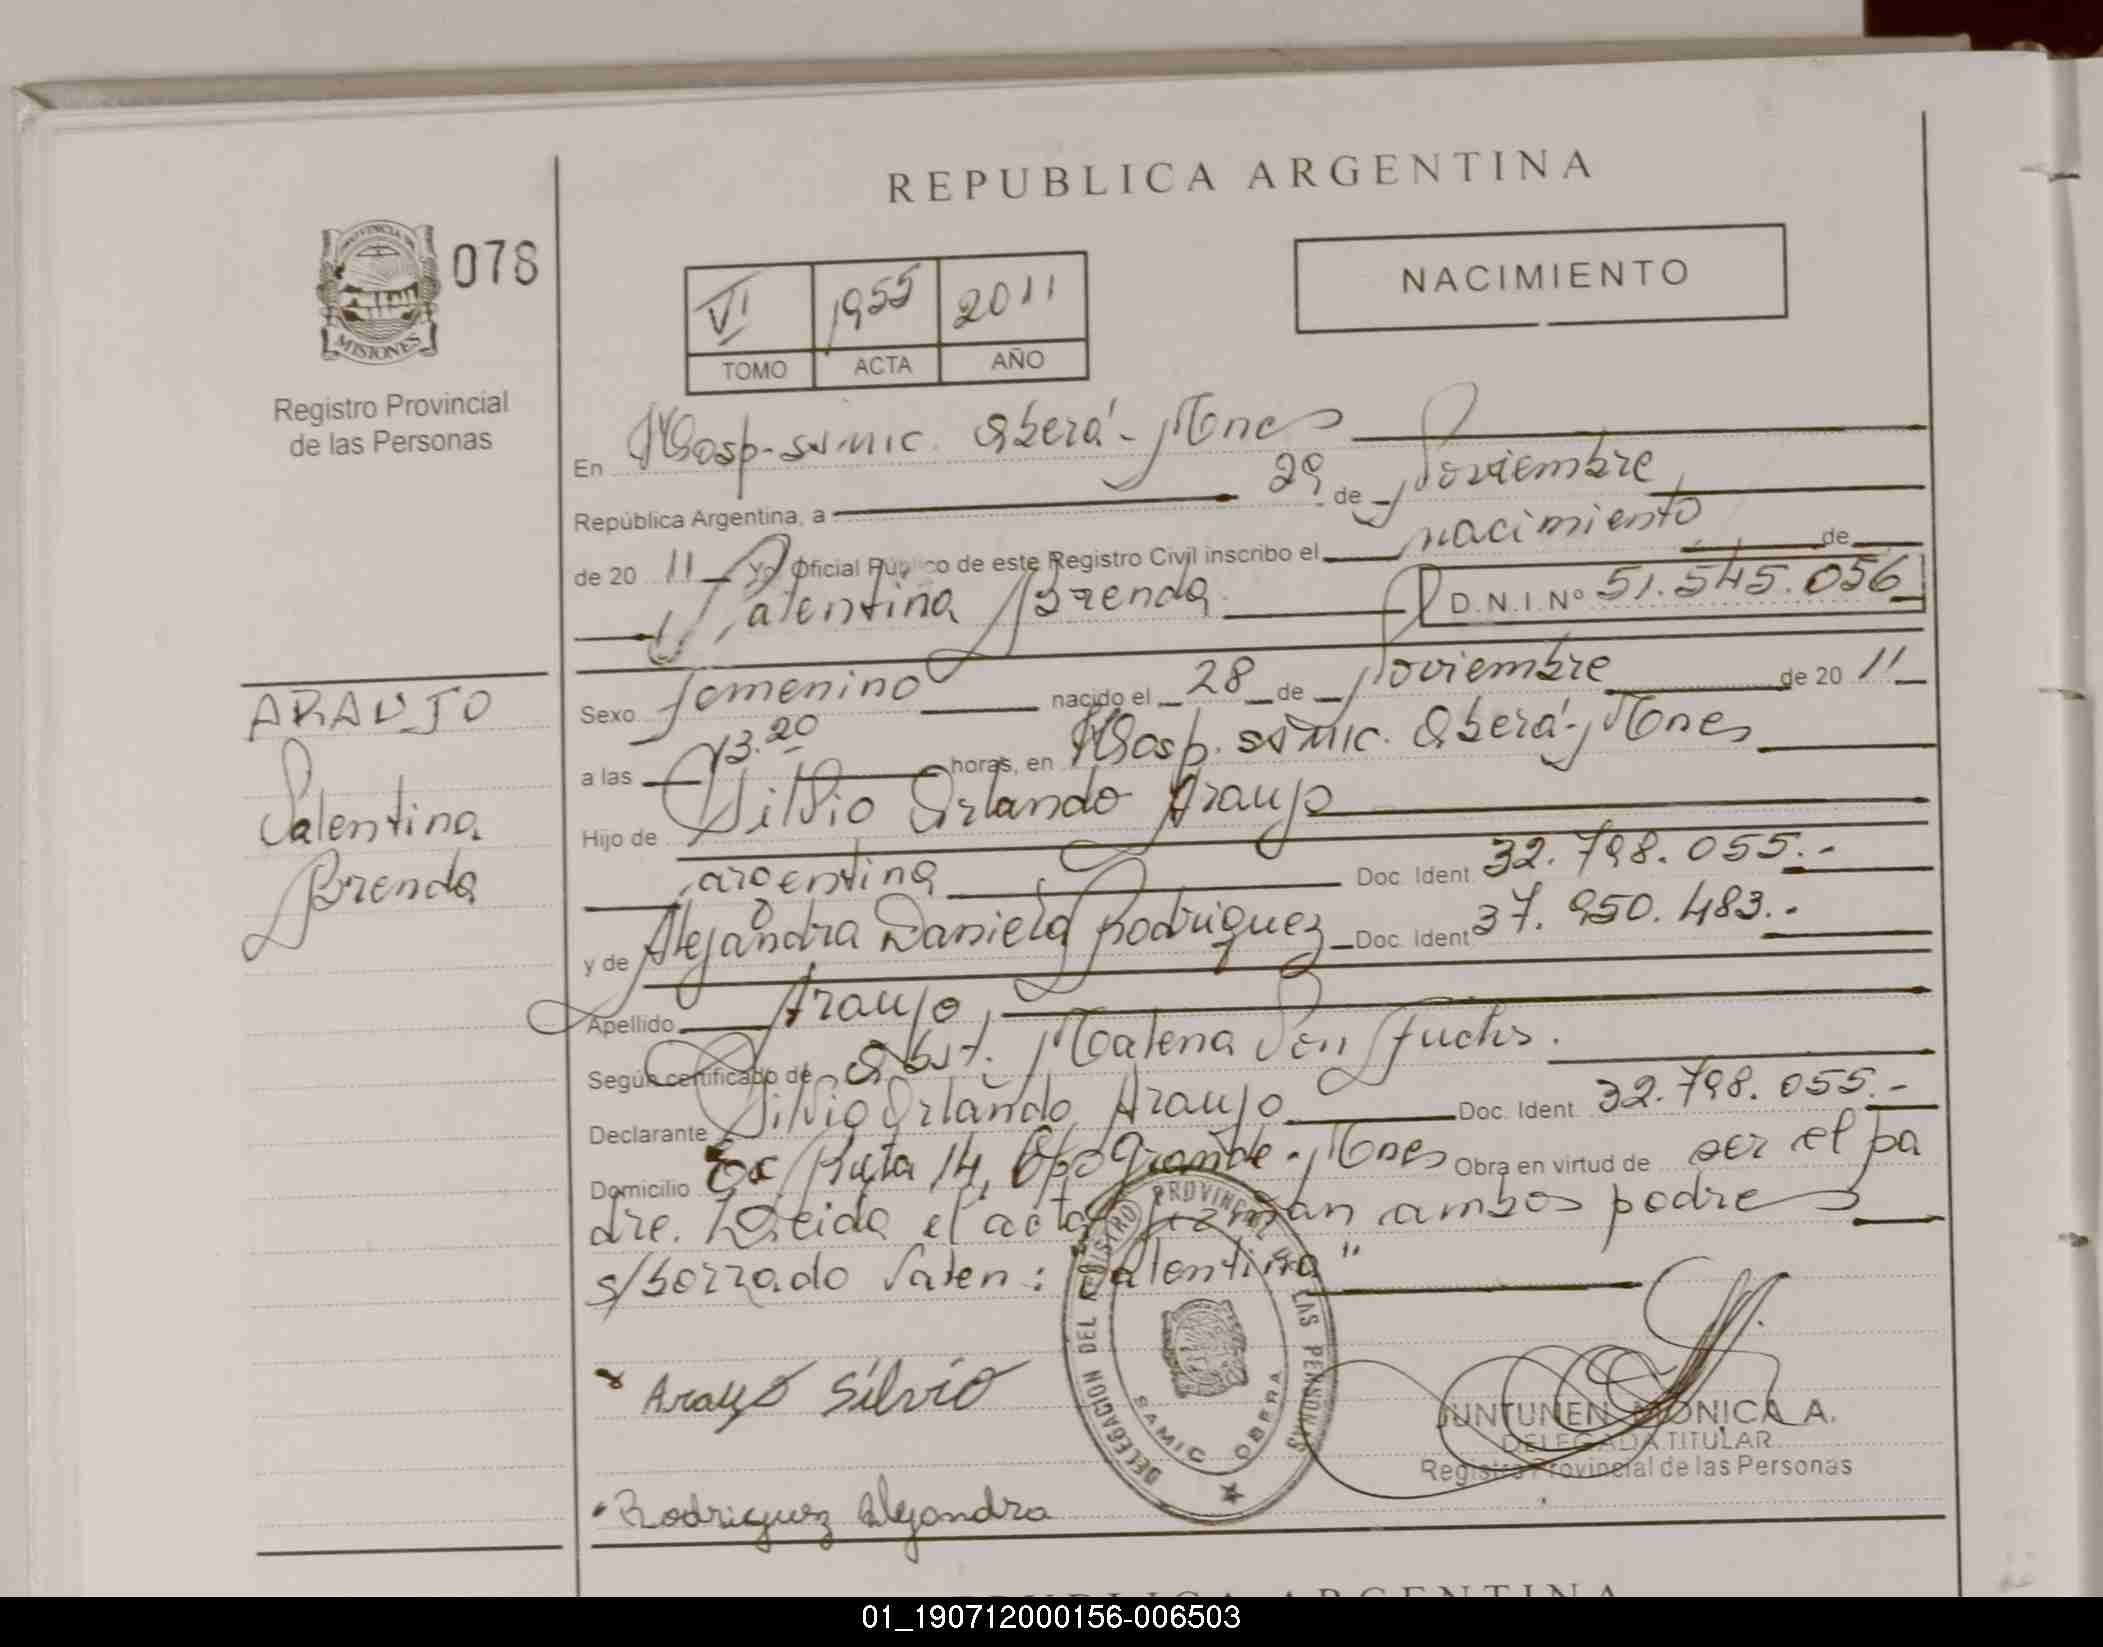 REPUBLICA ARGENTINA
PROVINCIA DE
MISIONES
078
Registro Provincial
de las Personas
VI 1955 2011
TOMO ACTA AÑO
NACIMIENTO
En Hosp. samic. Oberá - Mnes
República Argentina, a 29 de Noviembre
de 20 11 Yo Oficial Público de este Registro Civil inscribo el nacimiento de
Valentina Brenda D.N.I. Nº 51.545.056
Sexo femenino nacido el 28 de Noviembre de 20 11
a las 13.20 horas, en Hosp. samic. Oberá - Mnes
Hijo de Silvio Orlando Araujo
argentina Doc. Ident. 32.798.055.-
y de Alejandra Daniela Rodriguez Doc. Ident. 37.950.483.-
Apellido Araujo
Según certificado de Obst. Malena Von Fuchs.
Declarante Silvio Orlando Araujo Doc. Ident. 32.798.055.-
Domicilio Ruta 14, Cpo Grande - Mnes Obra en virtud de ser el pa
dre. Leida el acta firman ambos padres
s/borrado Valen: Valentina"
ARAUJO
Valentina
Brenda
Araujo Silvio
Rodriguez Alejandra
DELEGACION DEL REGISTRO PROVINCIAL DE LAS PERSONAS
SAMIC OBERA
JUNTUNEN MONICA A.
DELEGADA TITULAR
Registro Provincial de las Personas
REPUBLICA ARGENTINA
01_190712000156-006503